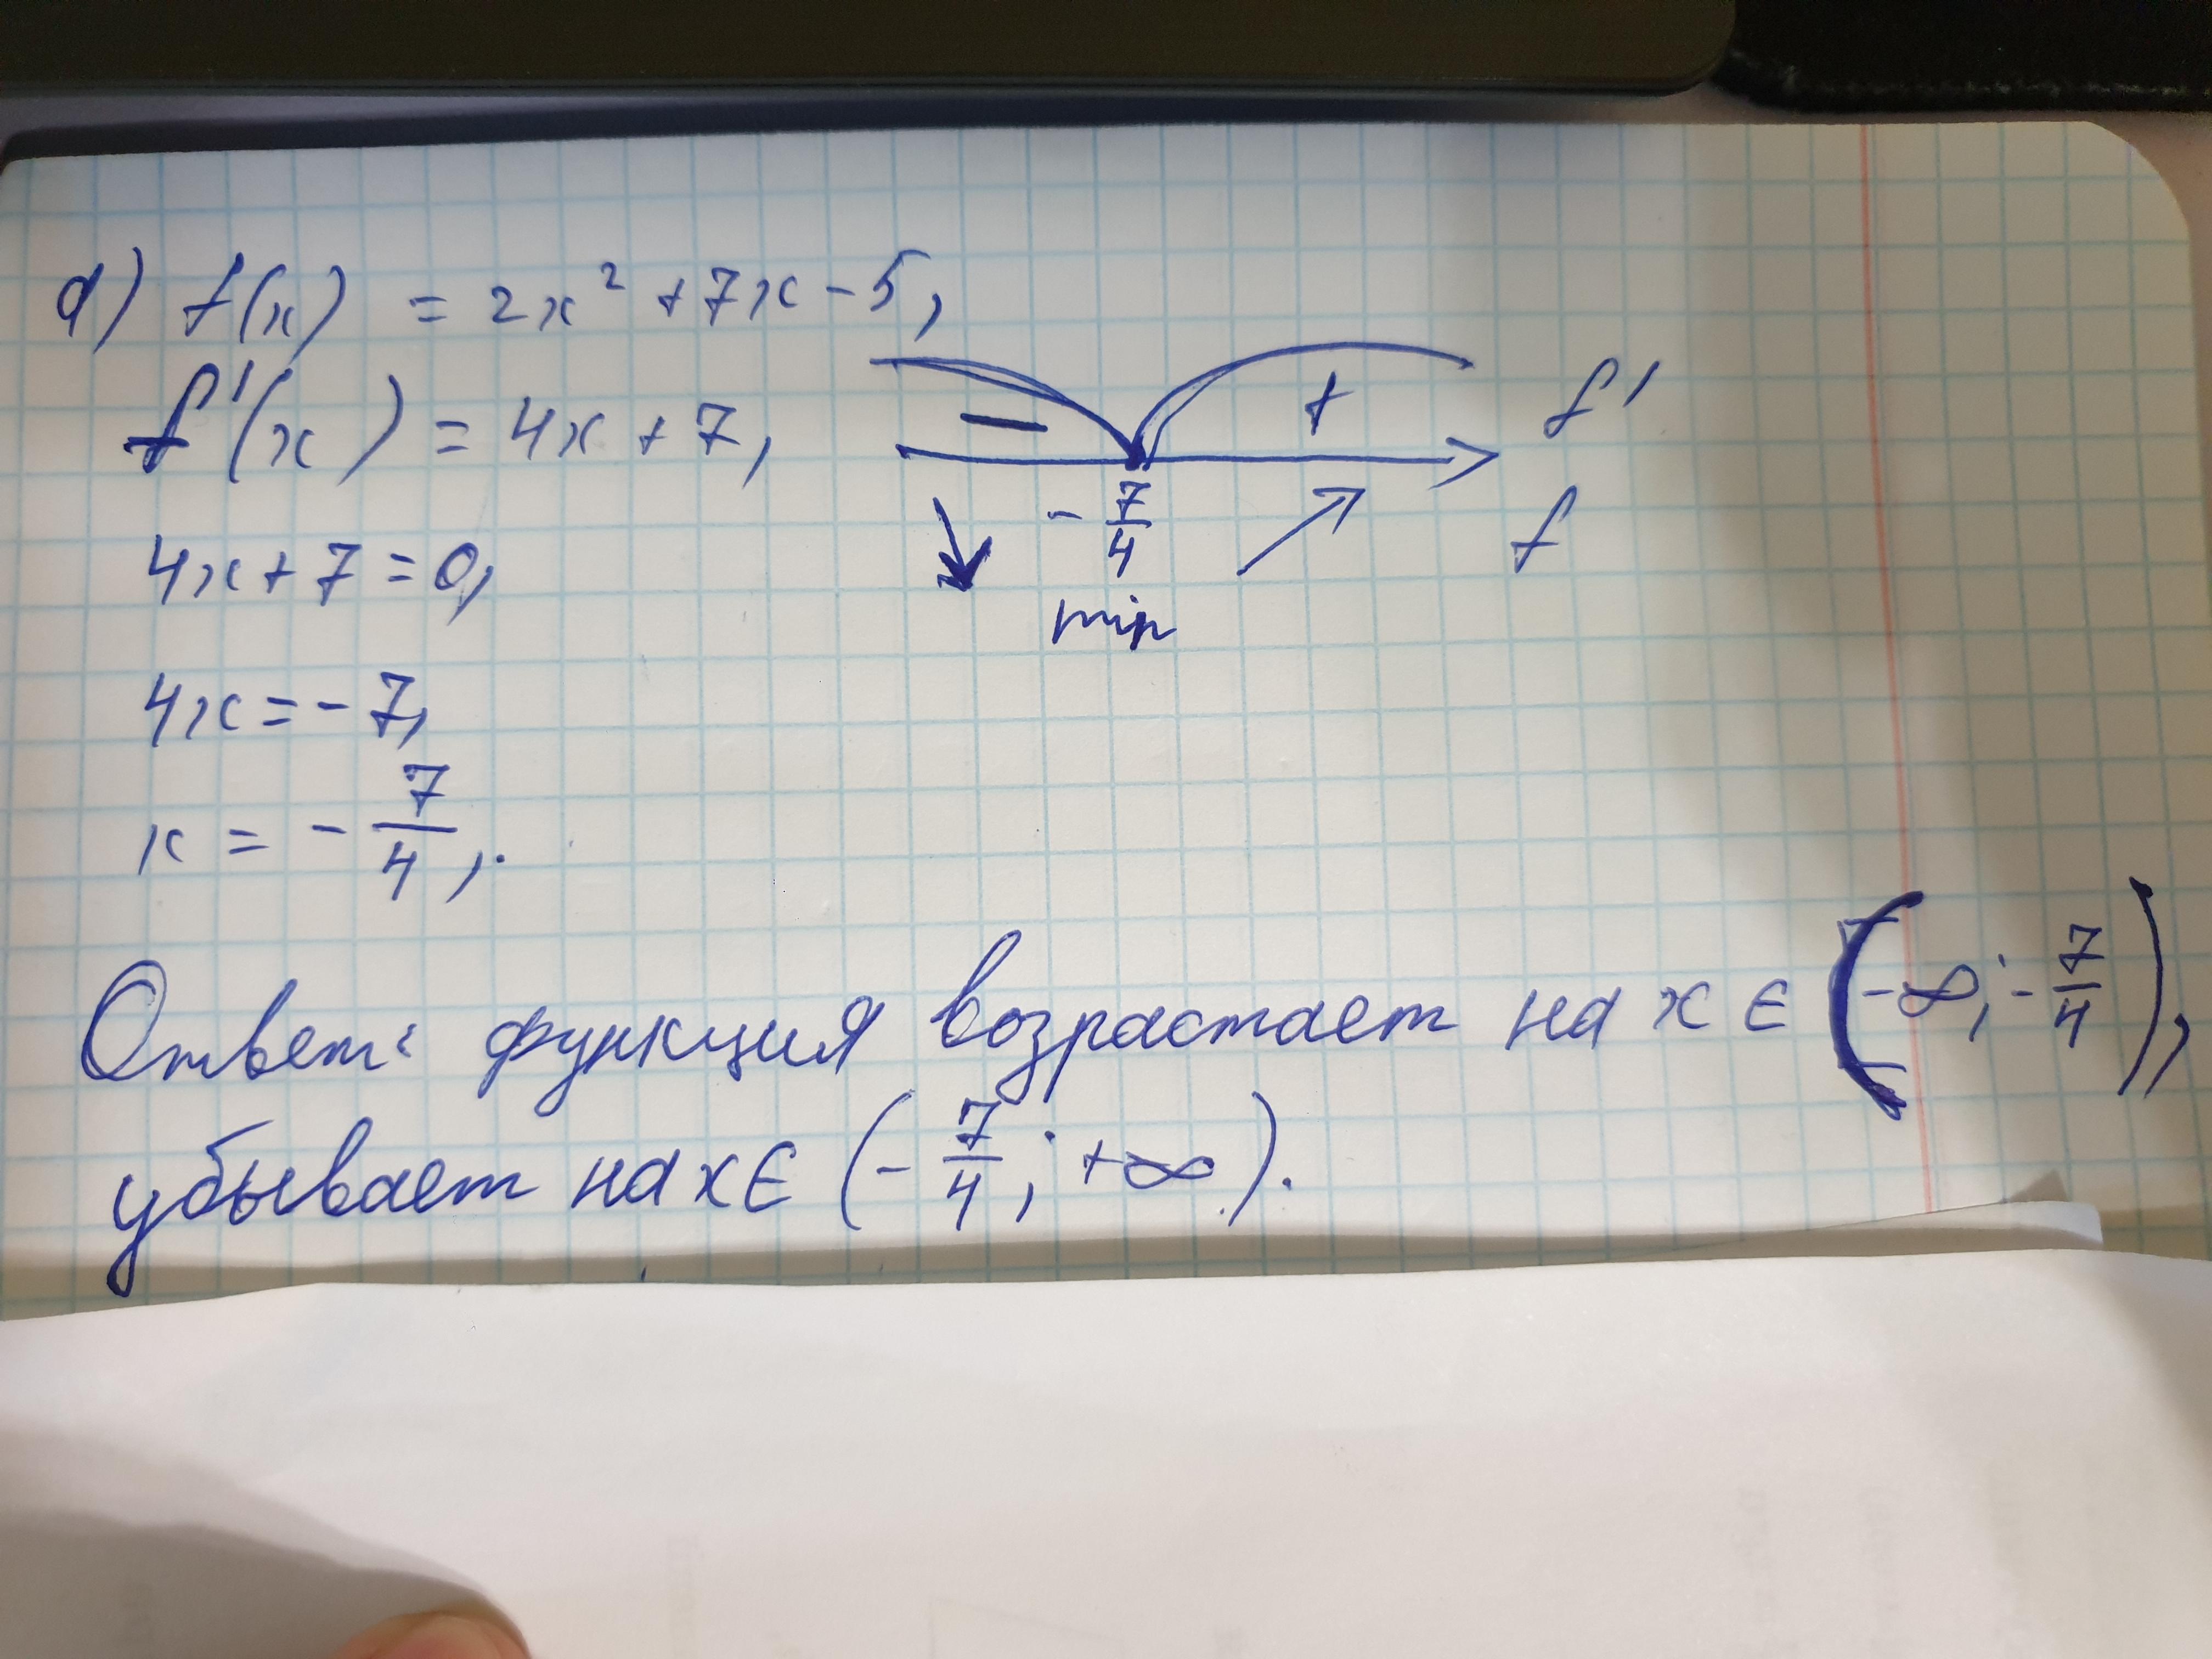 а) f(x) = 2x² + 7x - 5,
f'(x) = 4x + 7,
4x + 7 = 0,
4x = - 7,
x = - 7/4,.
- + f'
- 7/4 f
min
Ответ: функция возрастает на x ∈ (-∞; - 7/4),
убывает на x ∈ (- 7/4; +∞).